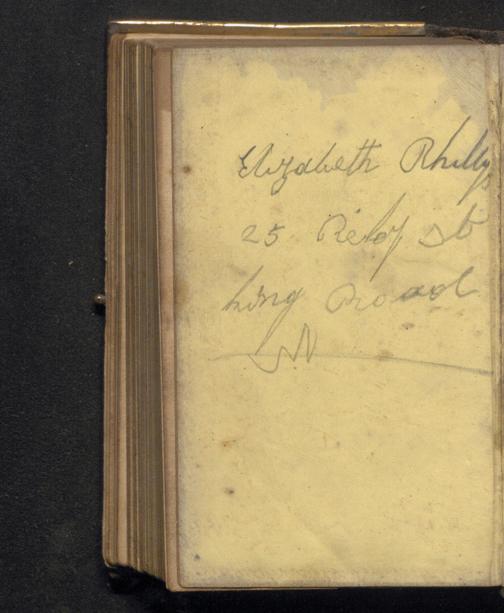 Elizabeth Phillips
25 St
King Road